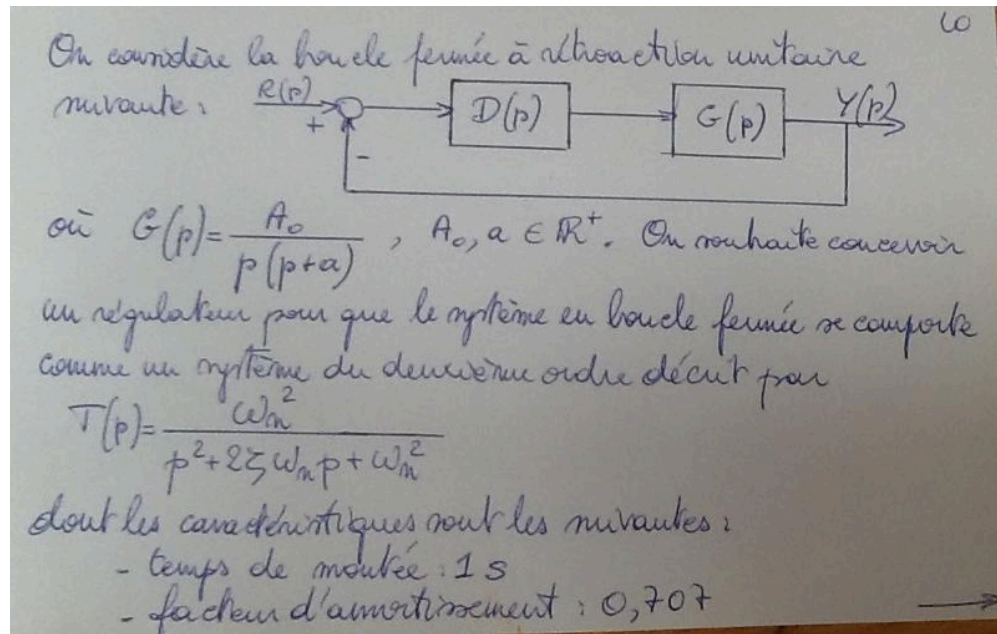 10
On considère la boucle fermée à rétroaction unitaire
suivante : R(p) + - D(p) G(p) Y(p)
où G(p) = A₀ / p(p+a) , A₀, a ∈ ℝ⁺. On souhaite concevoir
un régulateur pour que le système en boucle fermée se comporte
comme un système du deuxième ordre décrit par
T(p) = ωₙ² / p² + 2ζωₙp + ωₙ²
dont les caractéristiques sont les suivantes :
- temps de montée : 1 s
- facteur d'amortissement : 0,707 →